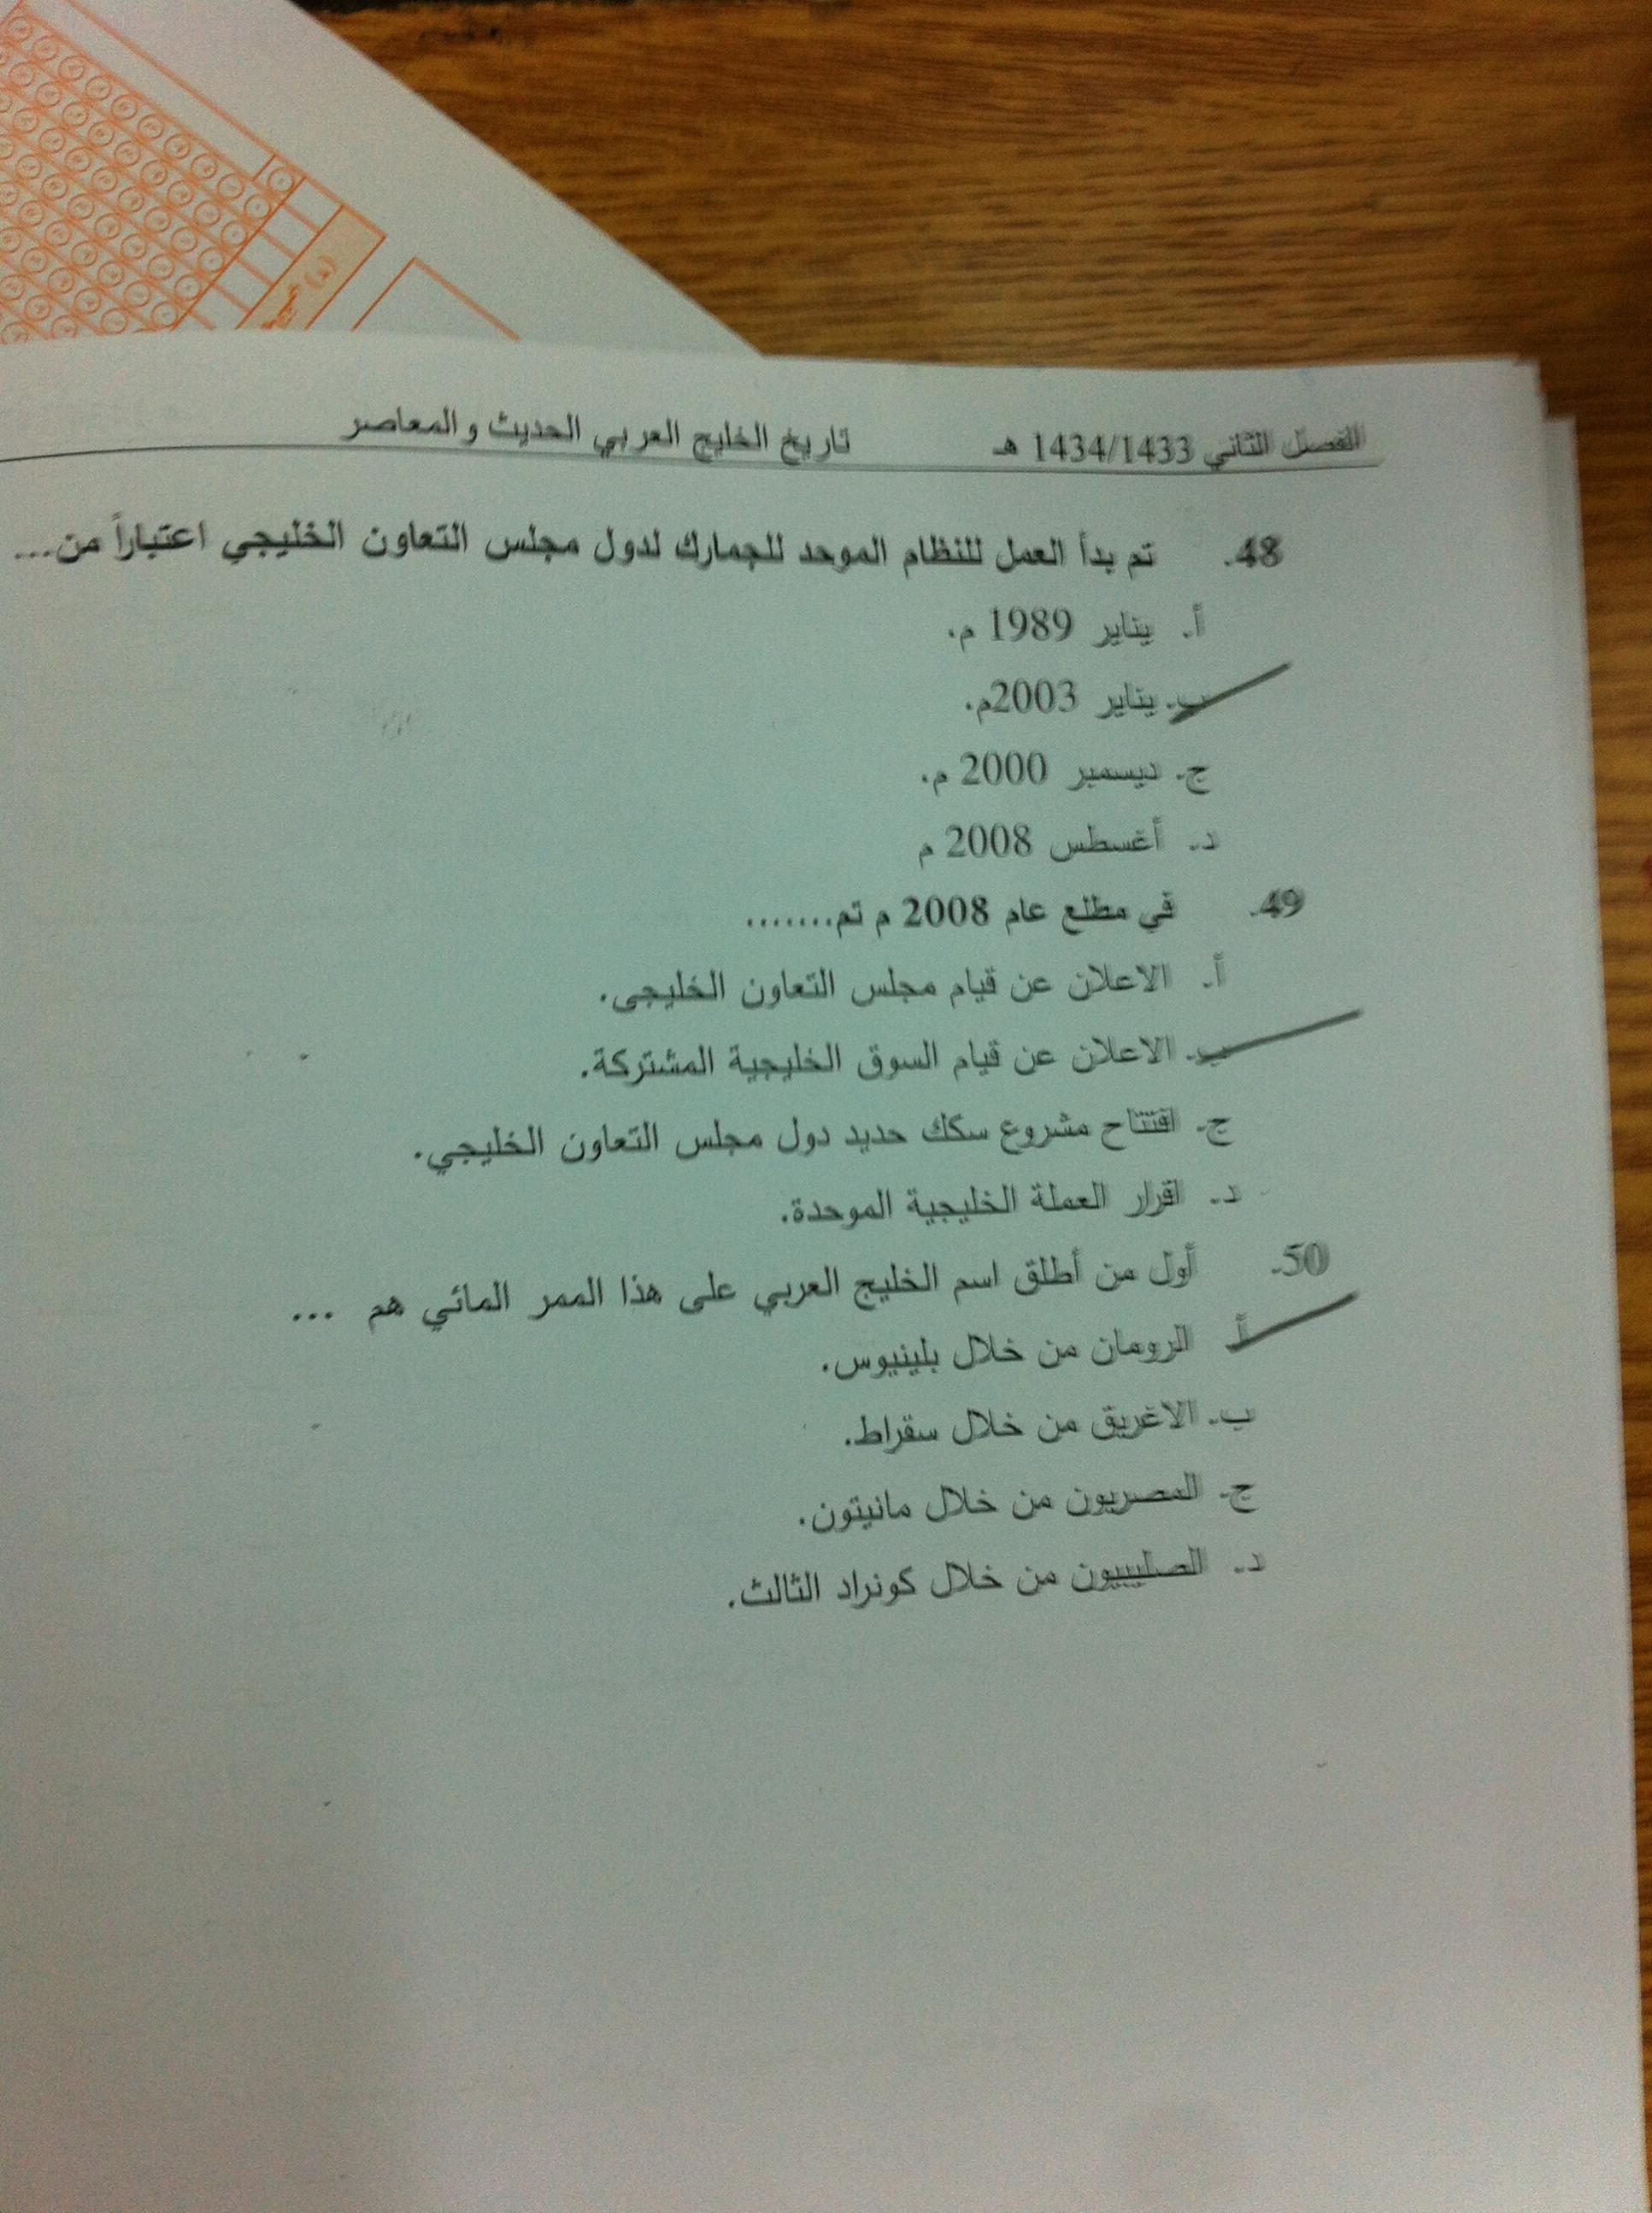 الفصل الثاني 1434/1433 هـ تاريخ الخليج العربي الحديث والمعاصر
48. تم بدأ العمل للنظام الموحد للجمارك لدول مجلس التعاون الخليجي اعتباراً من...
أ. يناير 1989 م.
ب. يناير 2003م.
ج. ديسمبر 2000 م.
د. أغسطس 2008 م
49. في مطلع عام 2008 م تم.......
أ. الاعلان عن قيام مجلس التعاون الخليجى.
ب. الاعلان عن قيام السوق الخليجية المشتركة.
ج. افتتاح مشروع سكك حديد دول مجلس التعاون الخليجي.
د. اقرار العملة الخليجية الموحدة.
50. أول من أطلق اسم الخليج العربي على هذا الممر المائي هم ...
أ. الرومان من خلال بلينيوس.
ب. الاغريق من خلال سقراط.
ج. المصريون من خلال مانيتون.
د. الصليبيون من خلال كونراد الثالث.